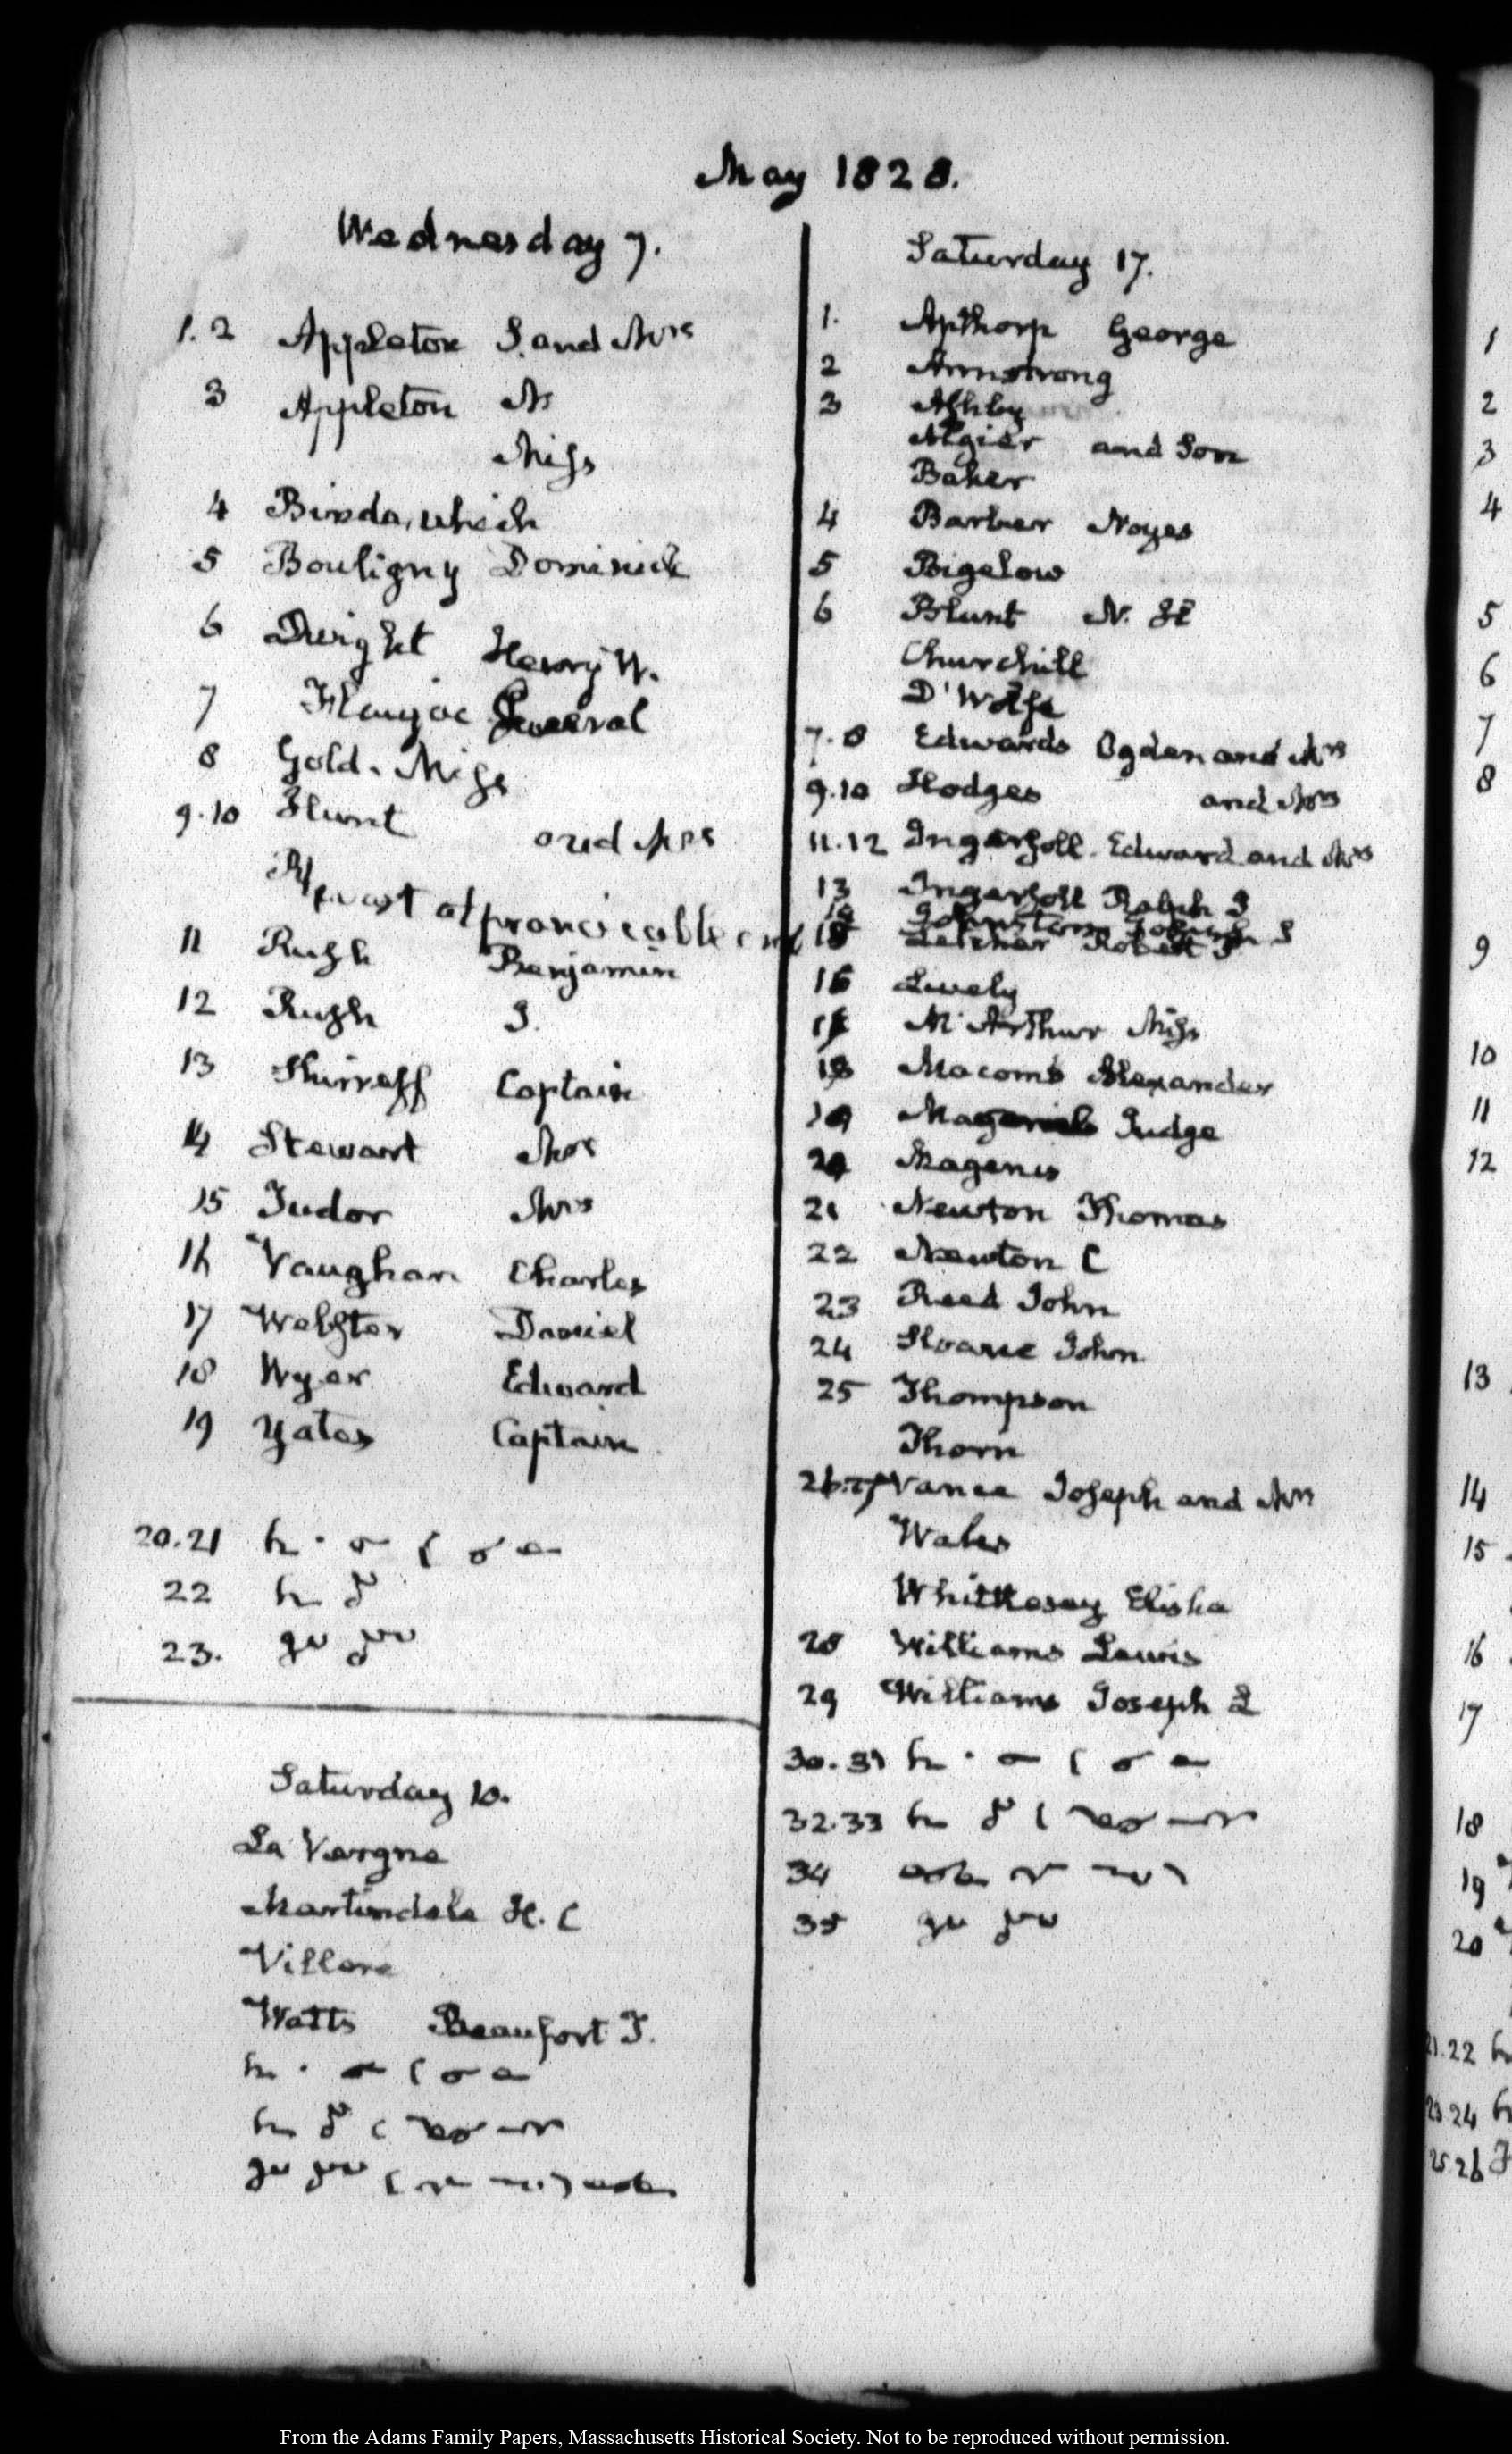 May 1828.
Wednesday 7.
1. 2 Appleton S. and Mrs
3 Appleton N
Miss
4
5 Bouligny Dominick
6 Dwight Henry W.
7 General
8 Gold. Miss
9.10 Hunt and Mrs
11 Rush Benjamin
12 Rush J.
13 Shirreff Captain
14 Stewart Mrs
15 Tudor Mrs
16 Vaughan Charles
17 Webster Daniel
18 Wyer Edward
19 Yates Captain
20.21
22
23.
Saturday 10.
La Vergne
Martindale H. C
Villere
Watts Beaufort T.
Saturday 17.
1. Apthorp George
2 Armstrong
3 Ashby
Algier and Son
Baker
4 Barber Noyes
5 Bigelow
6 Blunt N.
Churchill
D'Wolfe
7.8 Edwards Ogden and Mrs
9.10 Hodges and Mrs
11.12 Ingersoll. Edward and Mrs
13 Ingersoll Ralph I
14 Johnston Josiah S
15 Letcher Robert P
16 Lively
17 McArthur Miss
18 Macomb Alexander
19 Judge
20 Magenis
21 Newton Thomas
22 Newton C
23 Reed John
24 Sloane John
25 Thompson
Thorn
26.27 Vance Joseph and Mrs
Wales
Whittlesey Elisha
28 Williams Lewis
29 Williams Joseph L
30.31
32.33
34
35
1
2
3
4
5
6
7
8
9
10
11
12
13
14
15
16
17
18
19
20
21.22
23.24
25.26
From the Adams Family Papers, Massachusetts Historical Society. Not to be reproduced without permission.